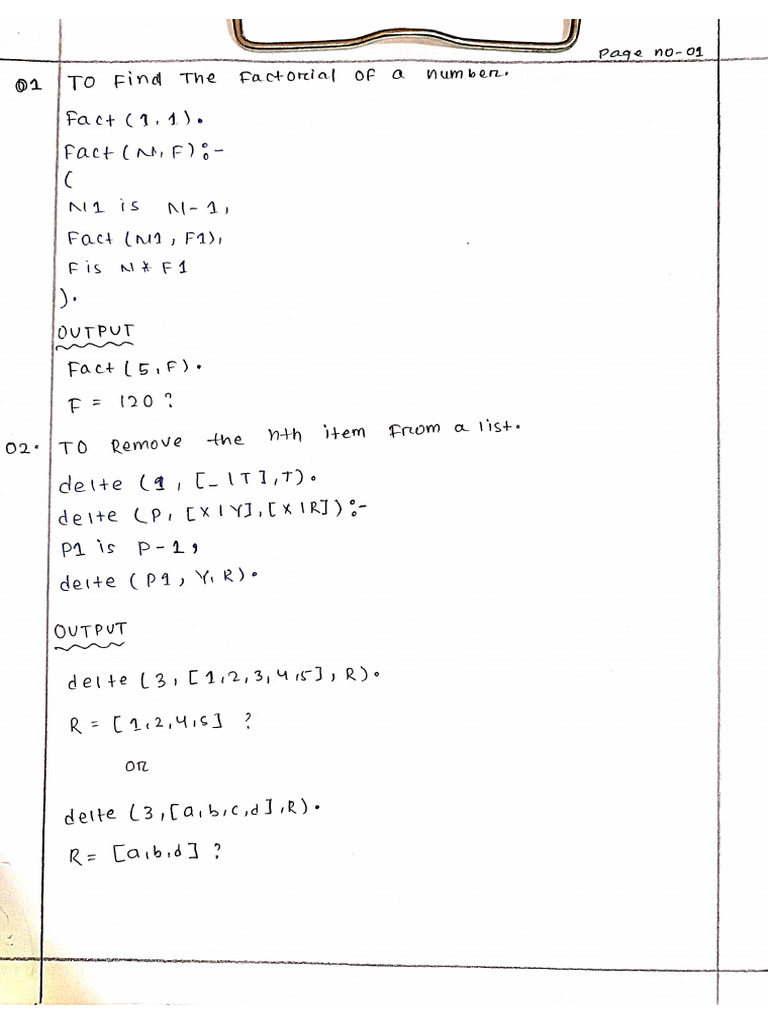 Page no-01
01 TO Find The Factorial of a number.
Fact (1,1).
Fact (N,F):-
(
N1 is N-1,
Fact (N1, F1),
F is N * F1
).
OUTPUT
Fact (5,F).
F = 120 ?
02. TO Remove the nth item From a list.
delte (1, [_|T],T).
delte (P, [X|Y],[X|R]):-
P1 is P-1,
delte (P1, Y,R).
OUTPUT
delte (3, [1,2,3,4,5], R).
R = [1,2,4,5] ?
or
delte (3,[a,b,c,d],R).
R = [a,b,d] ?